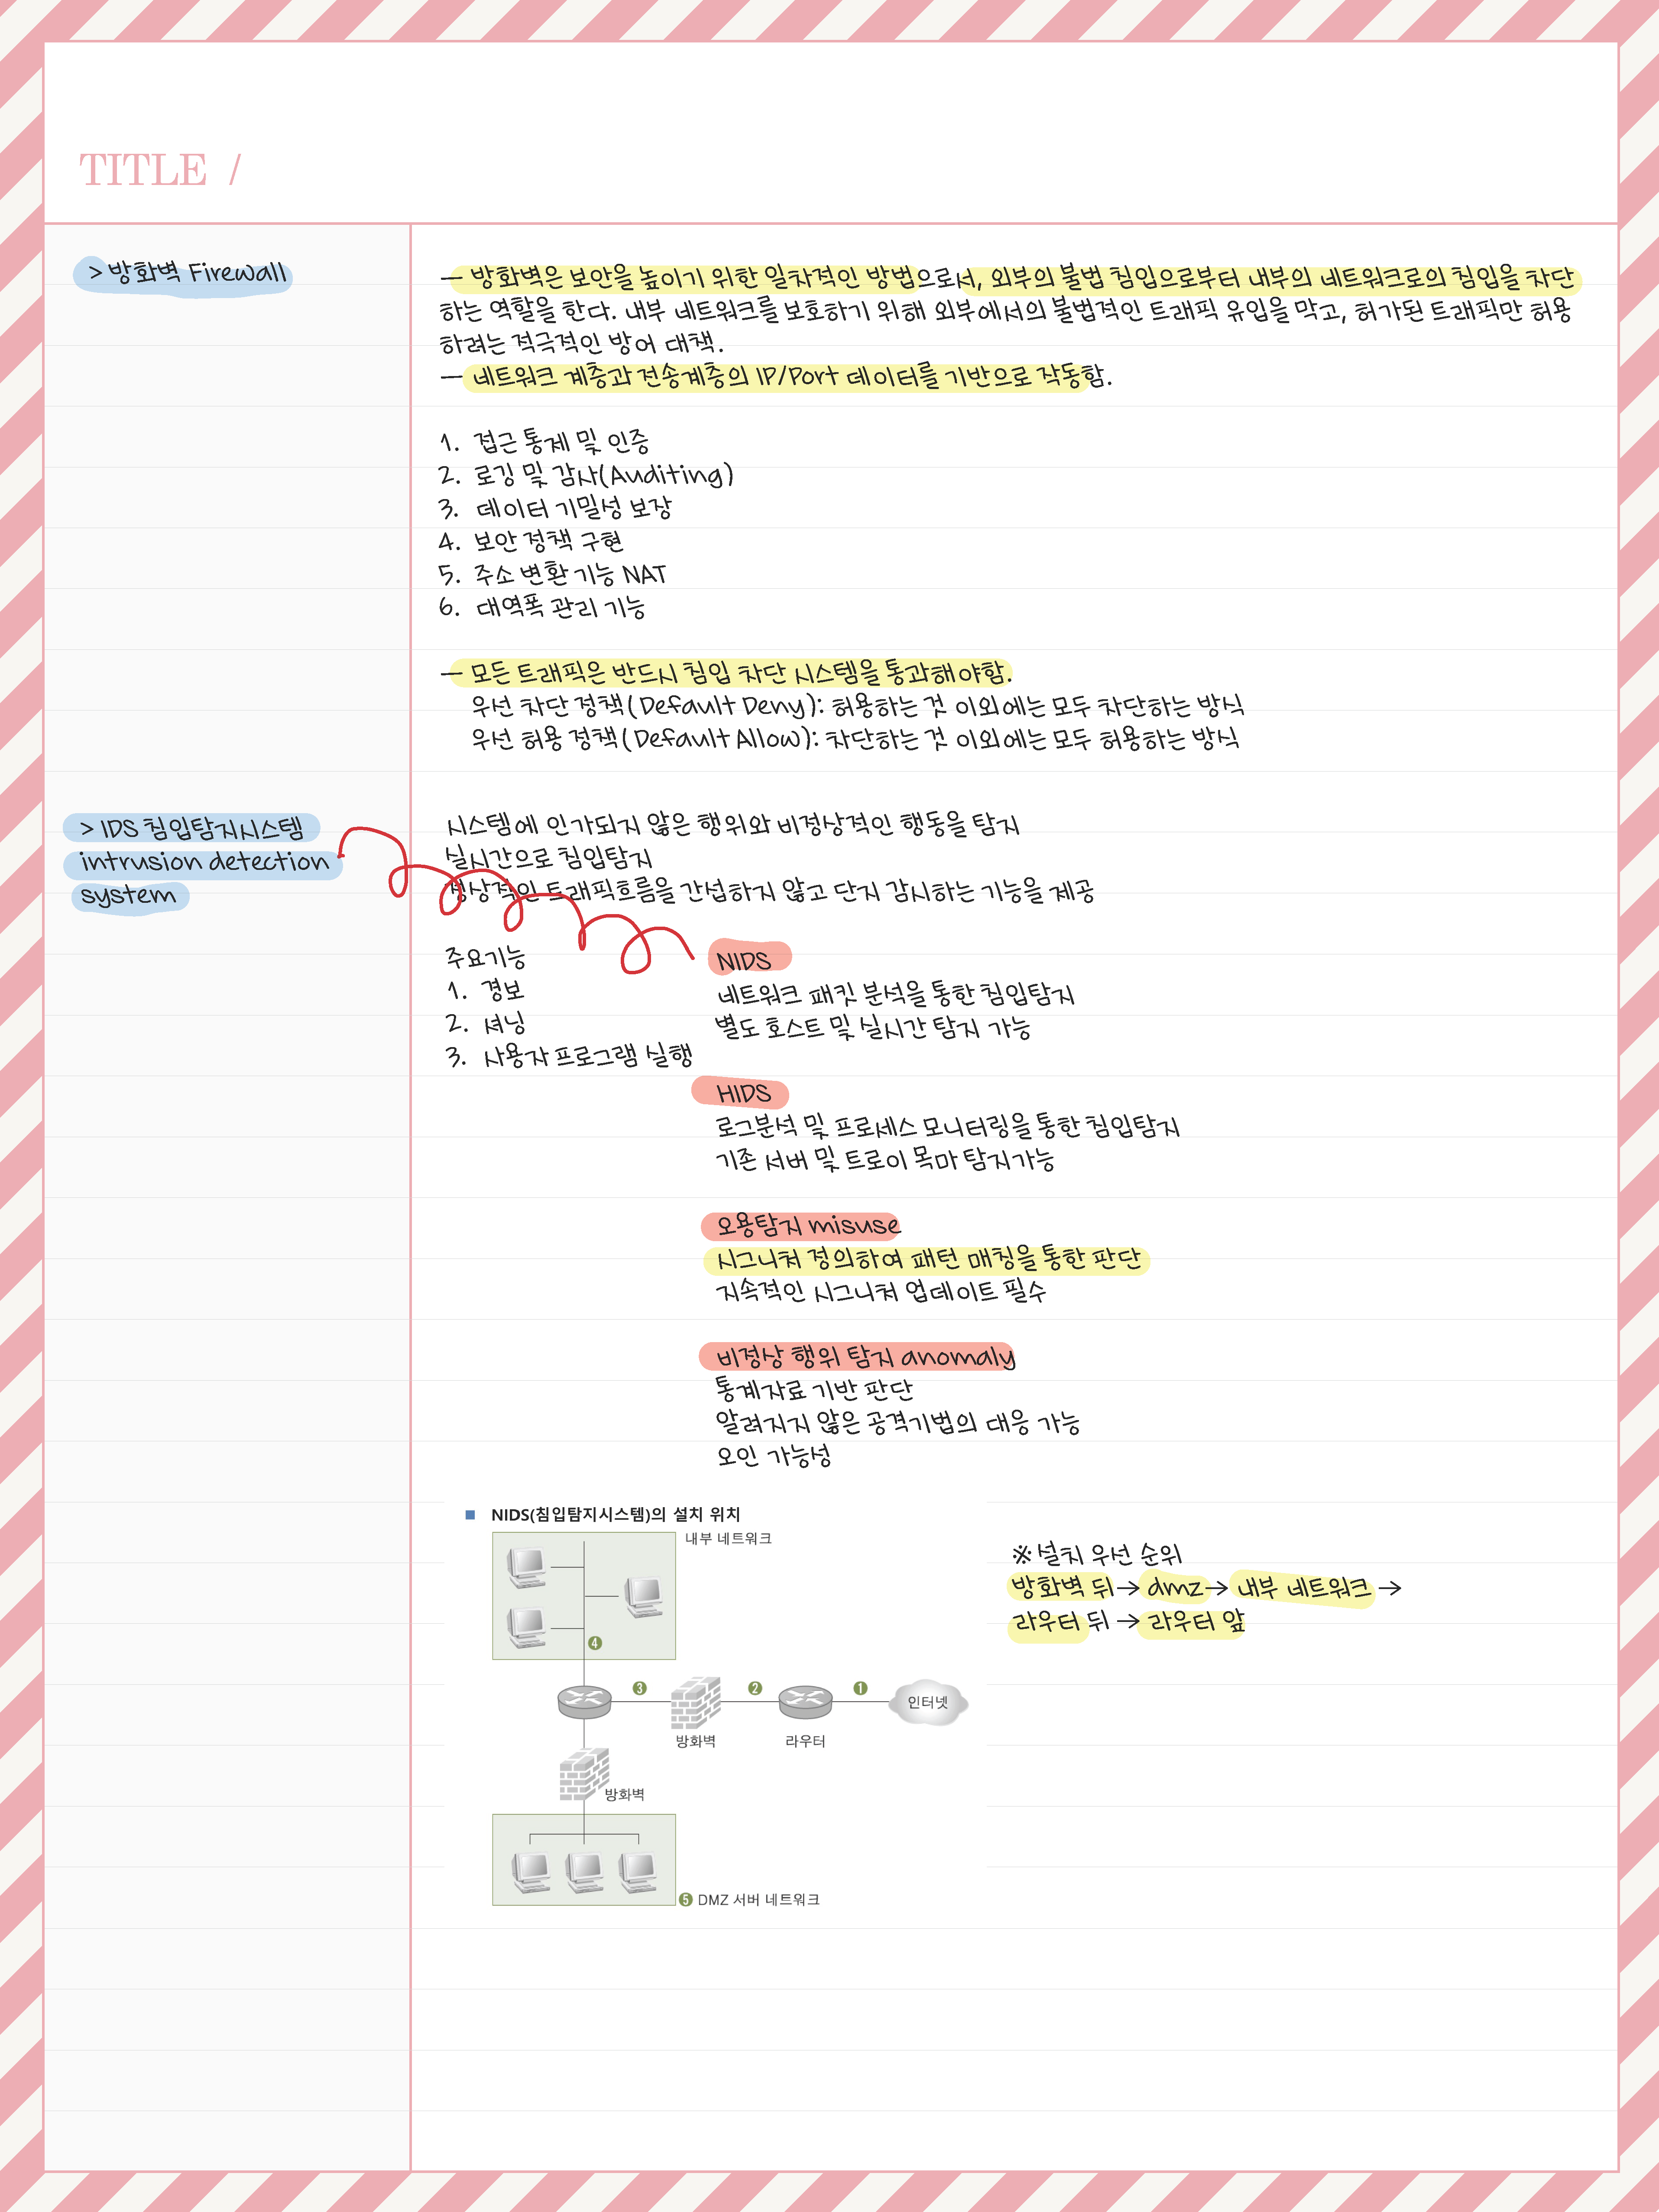 TITLE /
> 방화벽 Firewall
— 방화벽은 보안을 높이기 위한 일차적인 방법으로서, 외부의 불법 침입으로부터 내부의 네트워크로의 침입을 차단
하는 역할을 한다. 내부 네트워크를 보호하기 위해 외부에서의 불법적인 트래픽 유입을 막고, 허가된 트래픽만 허용
하려는 적극적인 방어 대책.
— 네트워크 계층과 전송계층의 IP/Port 데이터를 기반으로 작동함.
1. 접근 통제 및 인증
2. 로깅 및 감사(Auditing)
3. 데이터 기밀성 보장
4. 보안 정책 구현
5. 주소 변환 기능 NAT
6. 대역폭 관리 기능
— 모든 트래픽은 반드시 침입 차단 시스템을 통과해야함.
우선 차단 정책(Default Deny): 허용하는 것 이외에는 모두 차단하는 방식
우선 허용 정책(Default Allow): 차단하는 것 이외에는 모두 허용하는 방식
> IDS 침입탐지시스템
intrusion detection
system
시스템에 인가되지 않은 행위와 비정상적인 행동을 탐지
실시간으로 침입탐지
정상적인 트래픽흐름을 간섭하지 않고 단지 감시하는 기능을 제공
주요기능
1. 경보
2. 셔닝
3. 사용자 프로그램 실행
NIDS
네트워크 패킷 분석을 통한 침입탐지
별도 호스트 및 실시간 탐지 가능
HIDS
로그분석 및 프로세스 모니터링을 통한 침입탐지
기존 서버 및 트로이 목마 탐지가능
오용탐지 misuse
시그니처 정의하여 패턴 매칭을 통한 판단
지속적인 시그니처 업데이트 필수
비정상 행위 탐지 anomaly
통계자료 기반 판단
알려지지 않은 공격기법의 대응 가능
오인 가능성
■ NIDS(침입탐지시스템)의 설치 위치
내부 네트워크
4
3
2
1
인터넷
방화벽
라우터
방화벽
5 DMZ 서버 네트워크
※ 설치 우선 순위
방화벽 뒤 → dmz → 내부 네트워크 →
라우터 뒤 → 라우터 앞